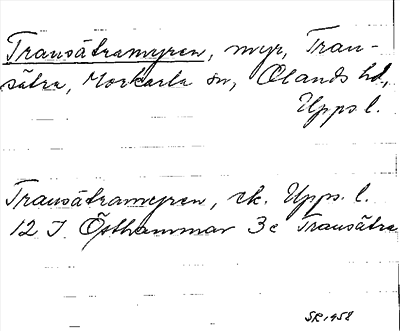 Transätramyren, myr, Tran-
sätra, Morkarla sn, Olands hd,
Upps l.
Transätramyren, ek. Upps. l.
12 I Östhammar 3c Transätra
SR 1958